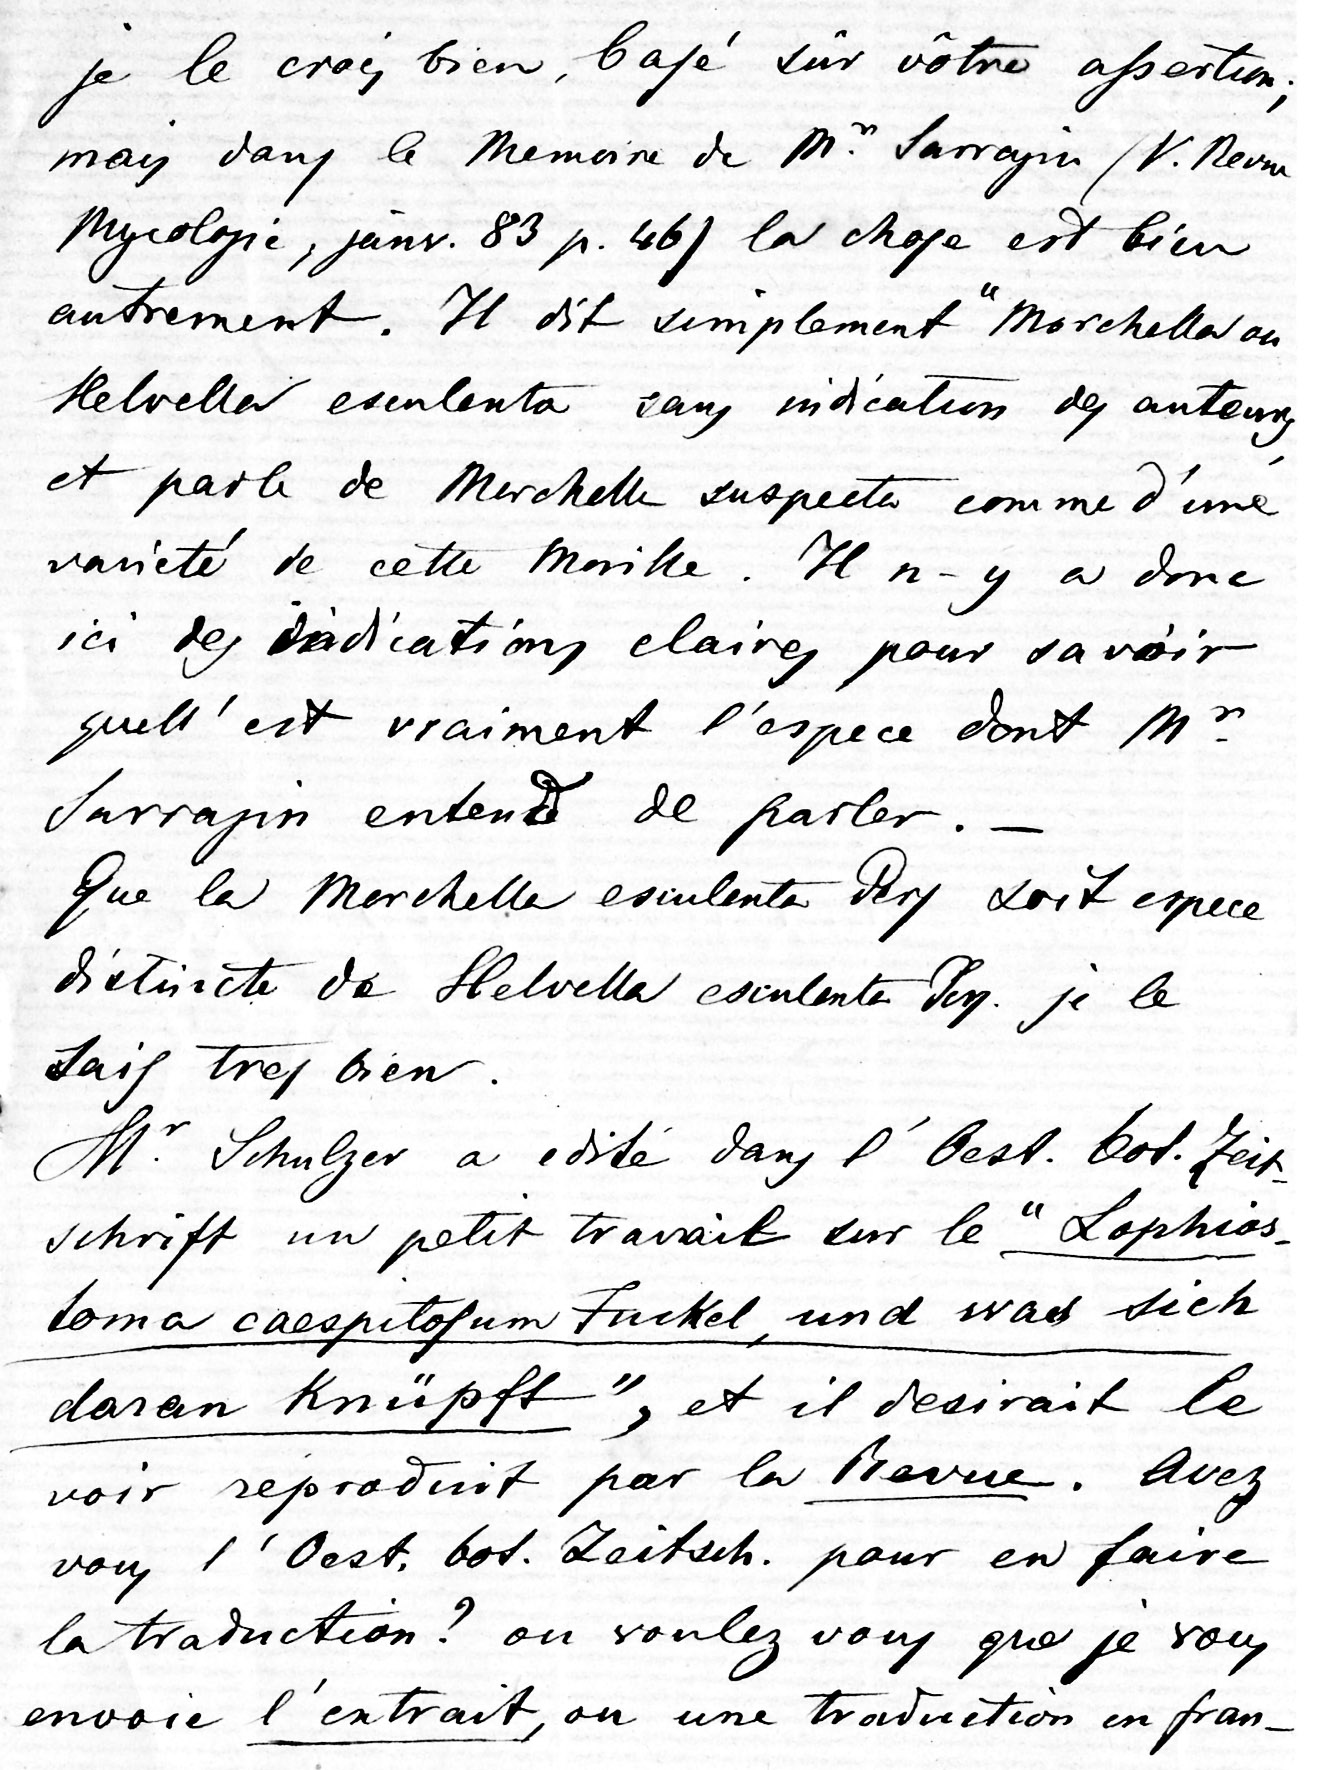 je le crois bien, basé sûr vôtre assertion;
mais dans le Memoire de Mr. Sarrazin (V. Revue
Mycologie, janv. 83 p. 46) la chose est bien
autrement. Il dit simplement "Morchella ou
Helvella esculenta sans indication des auteurs,
et parle de Morchella suspecta comme d'une
varieté de cette Morille. Il n-y a donc
ici des indications claires pour savoir
quell' est vraiment l'espece dont Mr.
Sarrazin entend de parler. —
Que la Morchella esculenta Pers soit espece
distincte de Helvella esculenta Pers. je le
sais tres bien.
Mr. Schulzer a edité dans l' Oest. bot. Zeit-
schrift un petit travail sur le "Lophios-
toma caespitosum Fuckel, und was sich
daran Knüpft", et il desirait le
voir reproduit par la Revue. Avez
vous l' Oest. bot. Zeitsch. pour en faire
la traduction? ou voulez vous que je vous
envoie l'extrait, ou une traduction en fran-